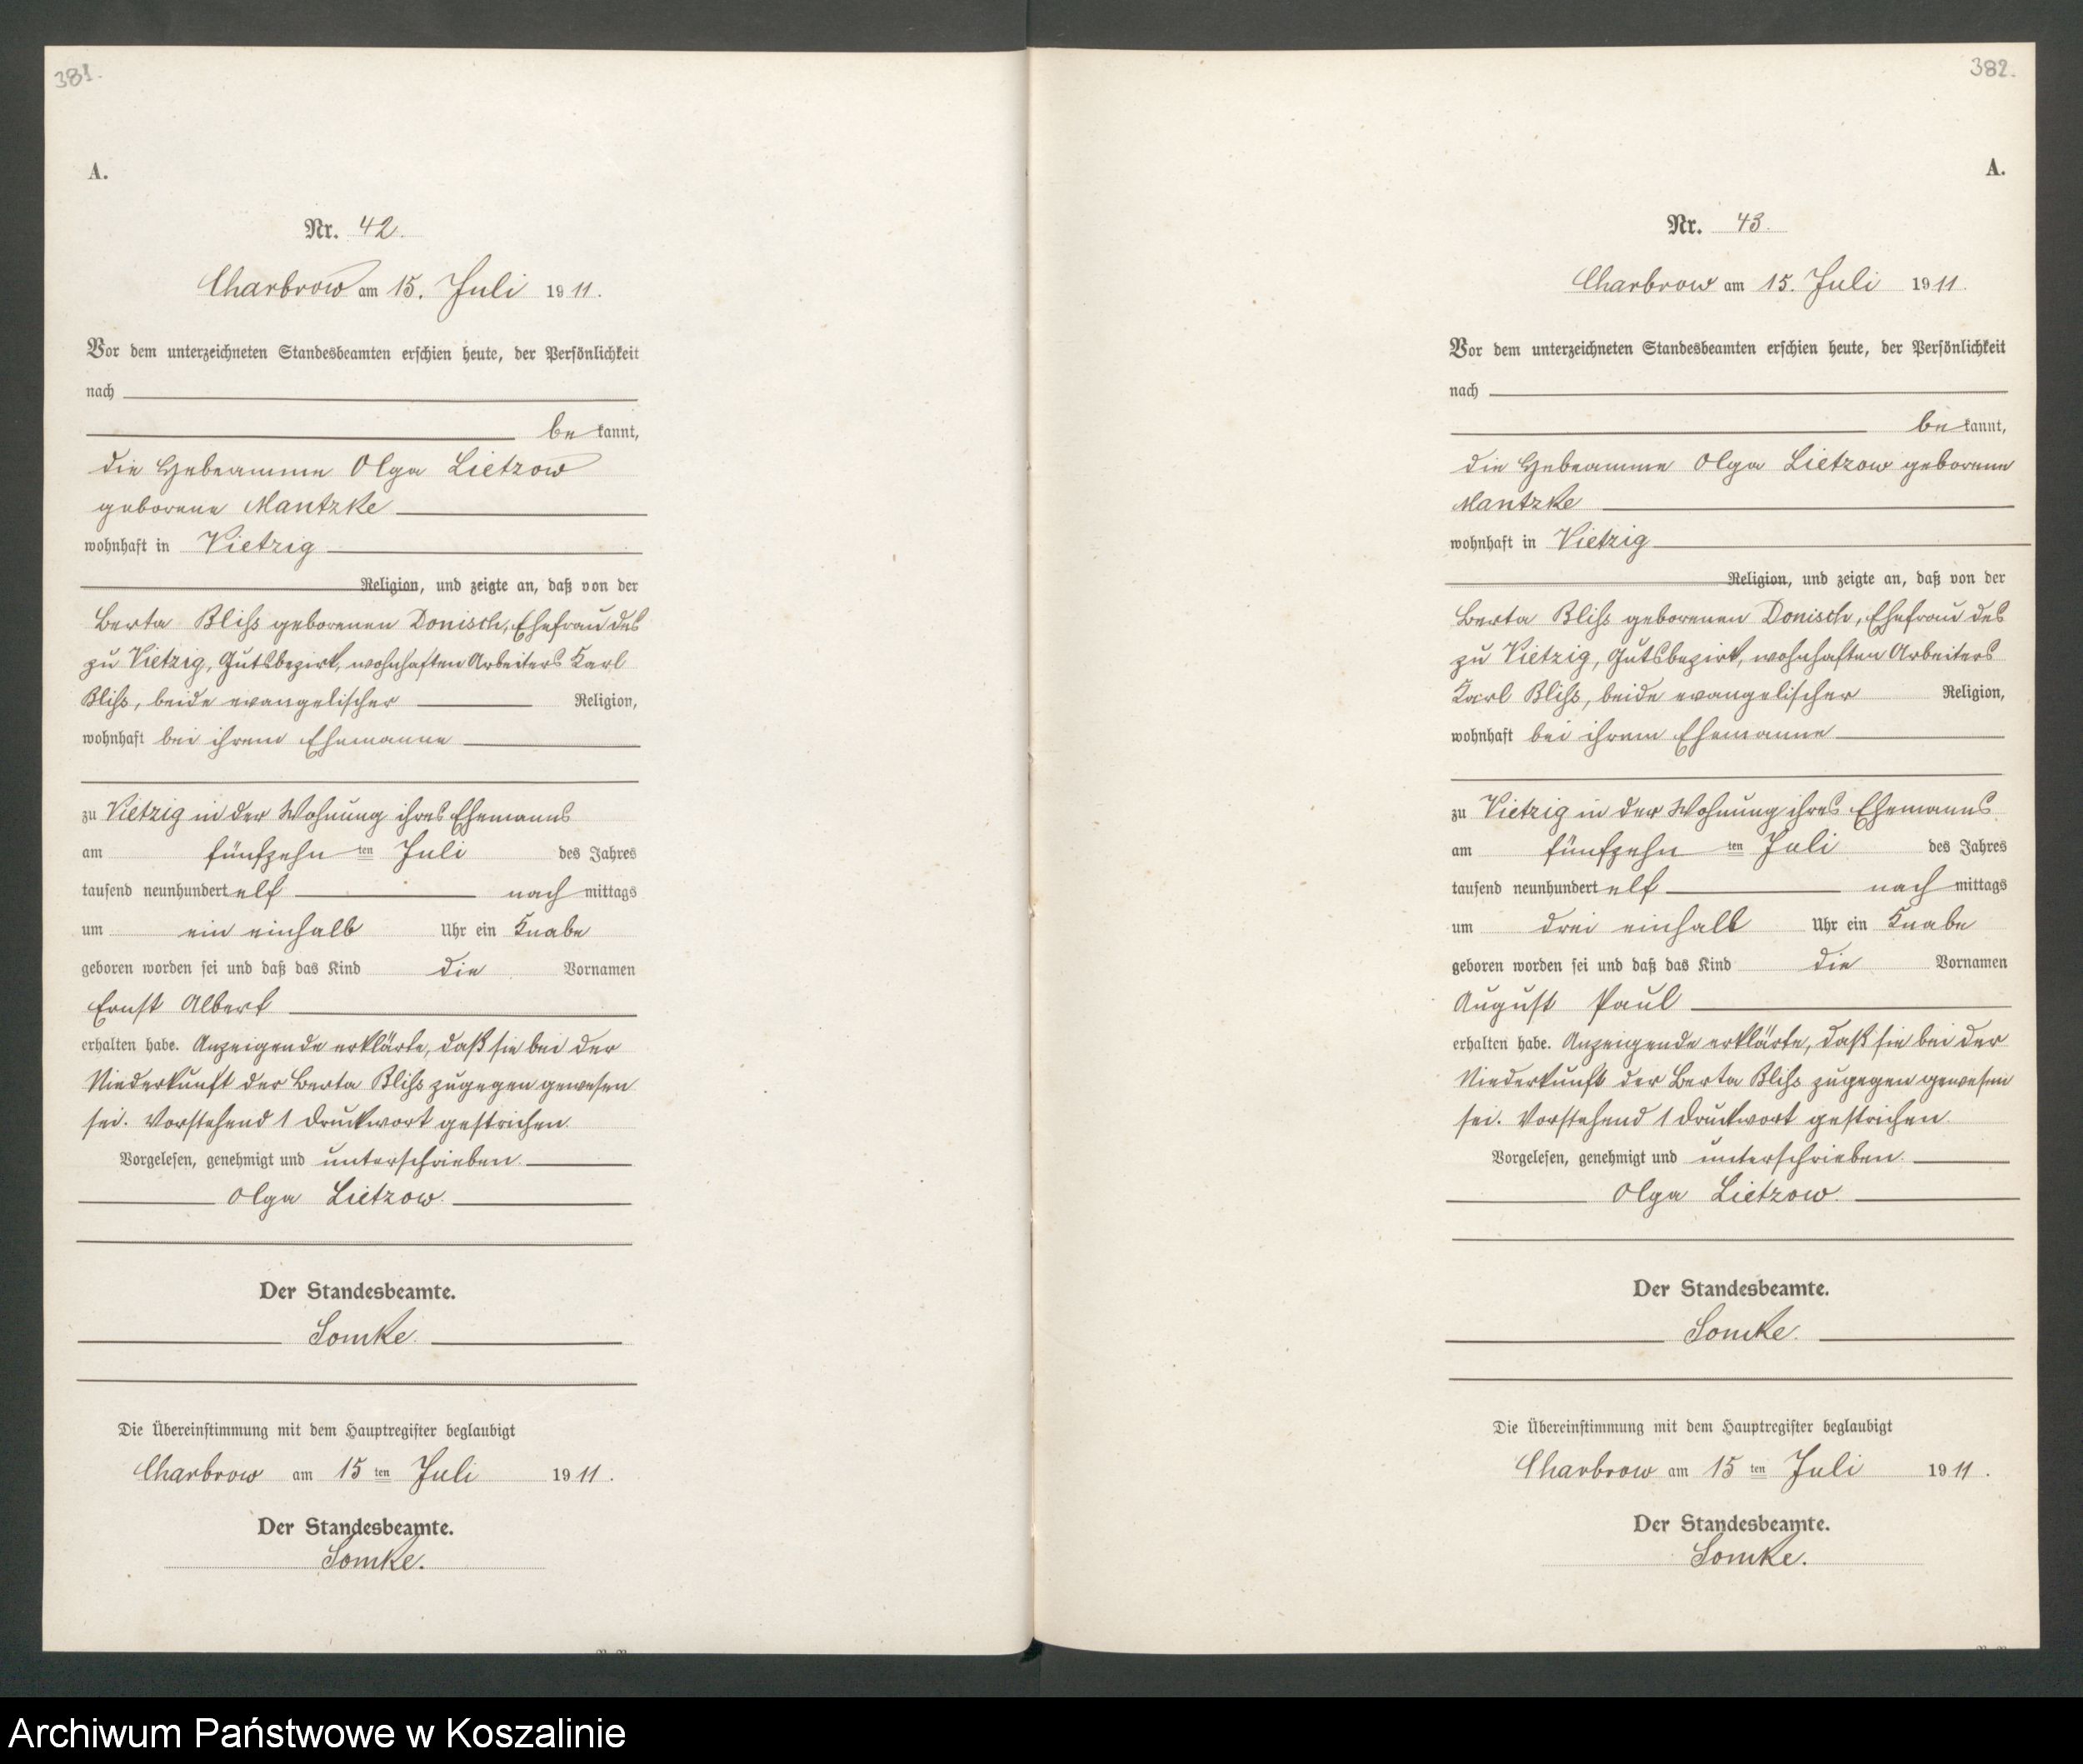 381.
A.
Nr. 42.
Charbrow am 15. Juli 1911.
Vor dem unterzeichneten Standesbeamten erschien heute, der Persönlichkeit
nach
bekannt,
die Hebeamme Olga Lietzow
geborene Mantzke
wohnhaft in Vietzig
Religion, und zeigte an, daß von der
Berta Bliß geborenen Donisch, Ehefrau des
zu Vietzig, Gutsbezirk, wohnhaften Arbeiters Karl
Bliß, beide evangelischer Religion,
wohnhaft bei ihrem Ehemanne
zu Vietzig in der Wohnung ihres Ehemanns
am fünfzehnten Juli des Jahres
tausend neunhundert elf nachmittags
um ein einhalb Uhr ein Knabe
geboren worden sei und daß das Kind die Vornamen
Ernst Albert
erhalten habe. Anzeigende erklärte, daß sie bei der
Niederkunft der Berta Bliß zugegen gewesen
sei. Vorstehend 1 Druckwort gestrichen.
Vorgelesen, genehmigt und unterschrieben.
Olga Lietzow.
Der Standesbeamte.
Somke.
Die Übereinstimmung mit dem Hauptregister beglaubigt
Charbrow am 15ten Juli 1911.
Der Standesbeamte.
Somke.
382.
A.
Nr. 43.
Charbrow am 15. Juli 1911.
Vor dem unterzeichneten Standesbeamten erschien heute, der Persönlichkeit
nach
bekannt,
die Hebeamme Olga Lietzow geborene
Mantzke
wohnhaft in Vietzig
Religion, und zeigte an, daß von der
Berta Bliß geborenen Donisch, Ehefrau des
zu Vietzig, Gutsbezirk, wohnhaften Arbeiters
Karl Bliß, beide evangelischer Religion,
wohnhaft bei ihrem Ehemanne
zu Vietzig in der Wohnung ihres Ehemanns
am fünfzehnten Juli des Jahres
tausend neunhundert elf nachmittags
um drei einhalb Uhr ein Knabe
geboren worden sei und daß das Kind die Vornamen
August Paul
erhalten habe. Anzeigende erklärte, daß sie bei der
Niederkunft der Berta Bliß zugegen gewesen
sei. Vorstehend 1 Druckwort gestrichen.
Vorgelesen, genehmigt und unterschrieben.
Olga Lietzow.
Der Standesbeamte.
Somke.
Die Übereinstimmung mit dem Hauptregister beglaubigt
Charbrow am 15ten Juli 1911.
Der Standesbeamte.
Somke.
Archiwum Państwowe w Koszalinie